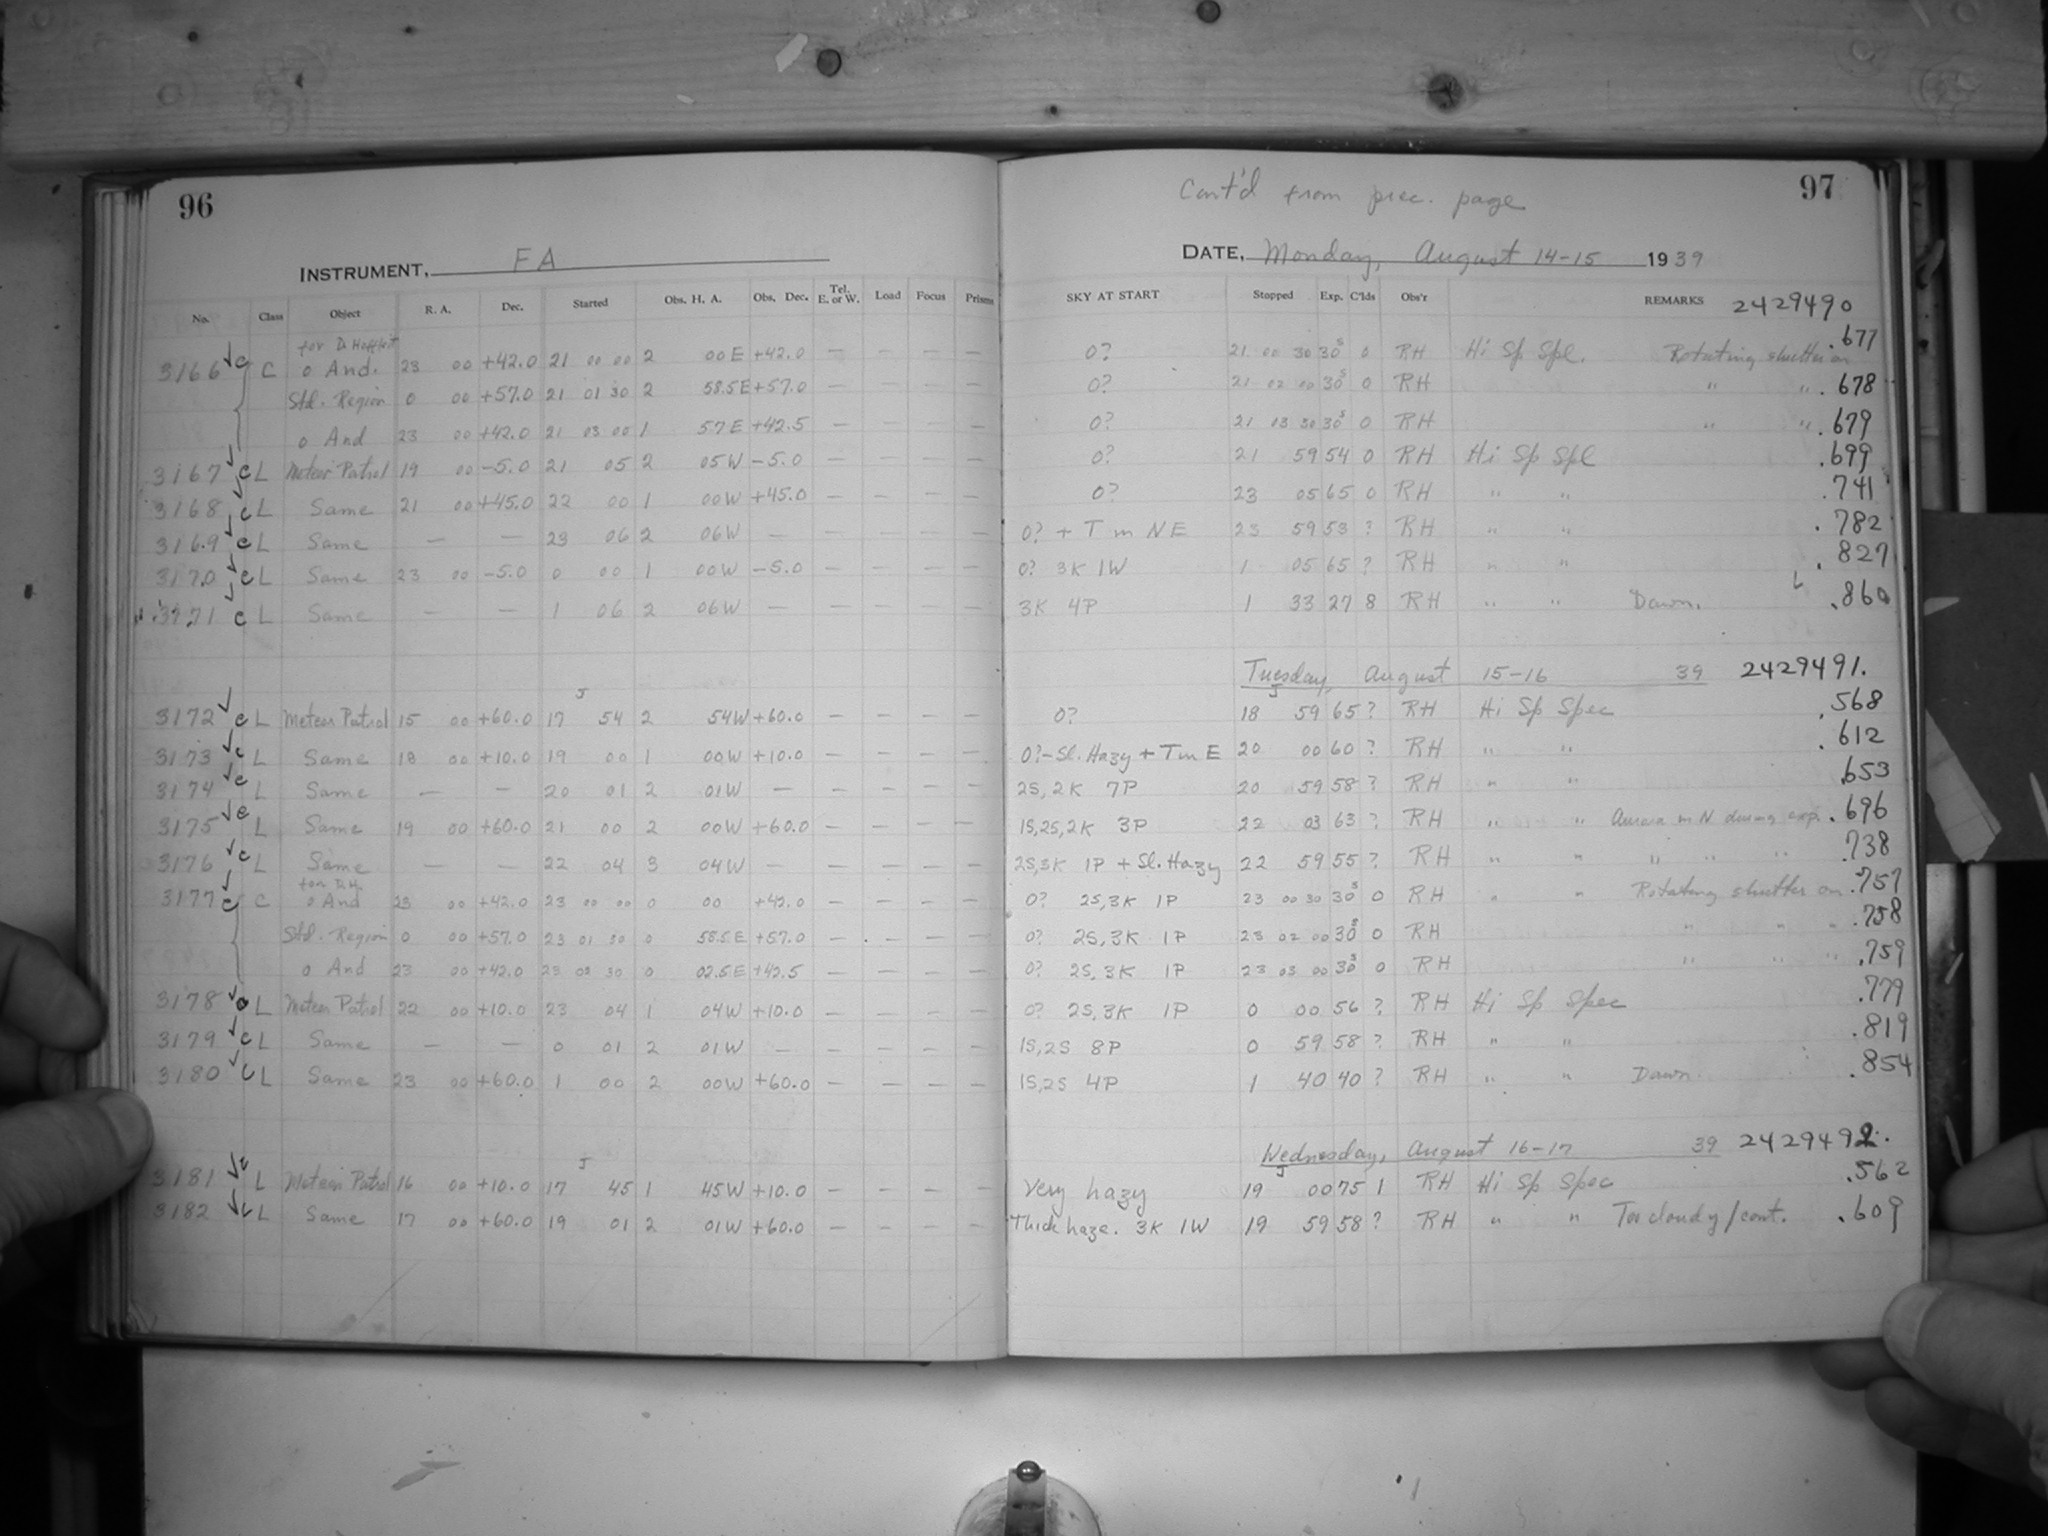 96
INSTRUMENT, FA
No. Class Object R. A. Dec. Started Obs. H. A. Obs. Dec. Tel. E. or W. Load Focus Prisms
for D. Hoffleit
3166 c C o And. 23 00 +42.0 21 00 00 2 00 E +42.0 — — — —
Std. Region 0 00 +57.0 21 01 30 2 58.5 E +57.0 — — — —
o And 23 00 +42.0 21 03 00 1 57 E +42.5 — — — —
3167 c L Meteor Patrol 19 00 -5.0 21 05 2 05 W -5.0 — — — —
3168 c L Same 21 00 +45.0 22 00 1 00 W +45.0 — — — —
3169 c L Same — — 23 06 2 06 W — — — — —
3170 c L Same 23 00 -5.0 0 00 1 00 W -5.0 — — — —
3171 c L Same — — 1 06 2 06 W — — — — —
J
3172 c L Meteor Patrol 15 00 +60.0 17 54 2 54 W +60.0 — — — —
3173 c L Same 18 00 +10.0 19 00 1 00 W +10.0 — — — —
3174 c L Same — — 20 01 2 01 W — — — — —
3175 c L Same 19 00 +60.0 21 00 2 00 W +60.0 — — — —
3176 c L Same — — 22 04 3 04 W — — — — —
for D.H.
3177 c C o And 23 00 +42.0 23 00 00 0 00 +42.0 — — — —
Std. Region 0 00 +57.0 23 01 30 0 58.5 E +57.0 — — — —
o And 23 00 +42.0 23 02 30 0 02.5 E +42.5 — — — —
3178 c L Meteor Patrol 22 00 +10.0 23 04 1 04 W +10.0 — — — —
3179 c L Same — — 0 01 2 01 W — — — — —
3180 c L Same 23 00 +60.0 1 00 2 00 W +60.0 — — — —
J
3181 c L Meteor Patrol 16 00 +10.0 17 45 1 45 W +10.0 — — — —
3182 c L Same 17 00 +60.0 19 01 2 01 W +60.0 — — — —
Cont'd from prec. page
97
DATE, Monday, August 14-15 1939
SKY AT START Stopped Exp. C'lds Obs'r REMARKS 2429490
0? 21 00 30 30s 0 RH Hi Sp Spl. Rotating shutter on .677
0? 21 02 00 30s 0 RH " " .678
0? 21 03 30 30s 0 RH " " .679
0? 21 59 54 0 RH Hi Sp Spl .699
0? 23 05 65 0 RH " " .741
0? + T in NE 23 59 53 ? RH " " .782
0? 3K 1W 1 05 65 ? RH " " .827
3K 4P 1 33 27 8 RH " " Dawn. .860
Tuesday, August 15-16 39 2429491.
J
0? 18 59 65 ? RH Hi Sp Spec .568
0?-Sl. Hazy + T in E 20 00 60 ? RH " " .612
2S, 2K 7P 20 59 58 ? RH " " .653
1S, 2S, 2K 3P 22 03 63 ? RH " " Aurora in N during exp. .696
2S, 3K 1P + Sl. Hazy 22 59 55 ? RH " " " " " .738
0? 2S, 3K 1P 23 00 30 30s 0 RH " " Rotating shutter on .757
0? 2S, 3K 1P 23 02 00 30s 0 RH " " " .758
0? 2S, 3K 1P 23 03 00 30s 0 RH " " " .759
0? 2S, 3K 1P 0 00 56 ? RH Hi Sp Spec .779
1S, 2S 8P 0 59 58 ? RH " " .819
1S, 2S 4P 1 40 40 ? RH " " Dawn. .854
Wednesday, August 16-17 39 2429492.
J
Very hazy 19 00 75 1 RH Hi Sp Spec .562
Thick haze. 3K 1W 19 59 58 ? RH " " Too cloudy / cont. .609